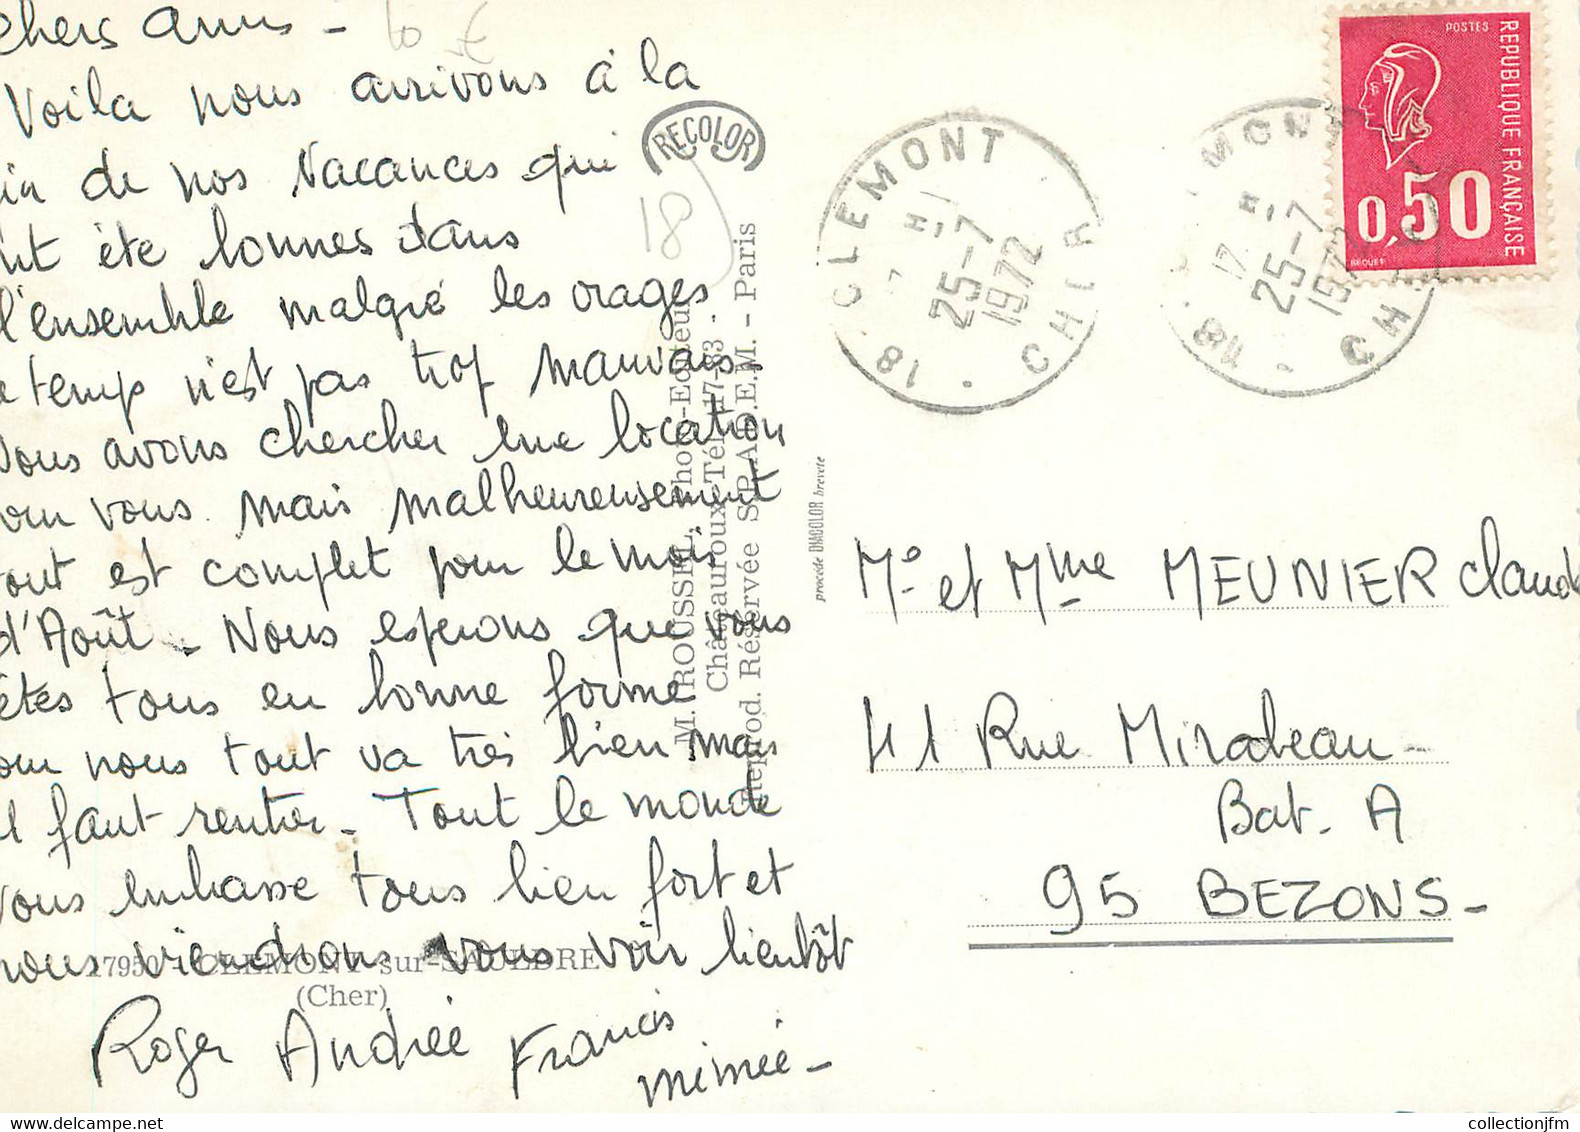 chers amis -
10 €
Voila nous arrivons à la
in de nos Vacances qui
nt été bonnes dans
l'ensemble malgré les orages
e temps n'est pas trop mauvais
Nous avons chercher une location
our vous mais malheureusement
tout est complet pour le mois
d'Août - Nous esperons que vous
êtes tous en bonne forme
our nous tout va très bien mais
il faut rentrer - Tout le monde
vous embrasse tous bien fort et
nous viendrons vous voir bientôt
Roger Andrée Francis
mimée -
17950 - CLEMONT-sur-SAULDRE
(Cher)
RECOLOR
18
M. ROUSSEL, Photo-Editeur
Châteauroux Tél. 17-33 -
Reprod. Réservée S.P.A.D.E.M. - Paris
procédé DIACOLOR breveté
18 CLEMONT CHER
17 H
25-7
1972
18 CLEMONT CHER
17 H
25-7
1972
POSTES
REPUBLIQUE FRANÇAISE
0,50
BEQUET
Mr et Mme MEUNIER Claude
41 Rue Mirabeau -
Bat. A
95 BEZONS -
collectionjfm